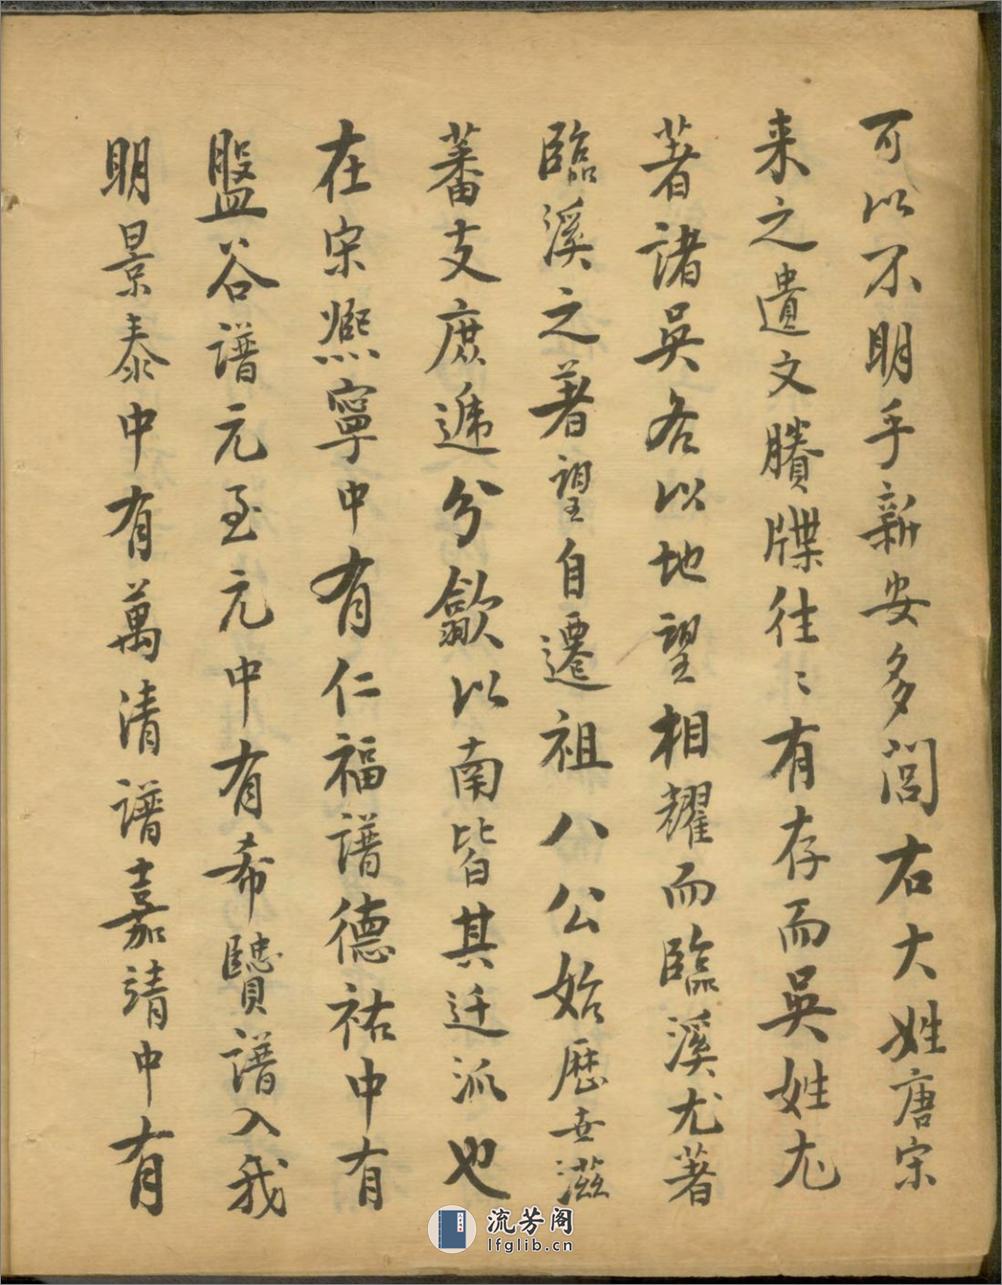 可以不明乎新安多閥右大姓唐宋
来之遺文賸牒往〻有存而吳姓尤
著諸吳各以地望相耀而臨溪尤著
臨溪之著望自遷祖八公始歷世滋
蕃支庶遞分歙以南皆其迁派也
在宋熈寧中有仁福譜德祐中有
盤谷譜元至元中有希賢譜入我
明景泰中有萬清譜嘉靖中有
流芳阁
lfglib.cn